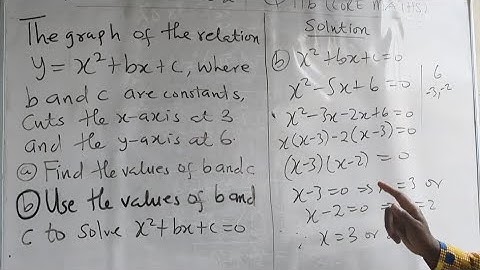 11b (CORE MATHS)
The graph of the relation
y = x² + bx + c, where
b and c are constants,
cuts the x-axis at 3
and the y-axis at 6.
(a) Find the values of b and c
(b) Use the values of b and
c to solve x² + bx + c = 0
Solution
(b) x² + bx + c = 0
x² - 5x + 6 = 0
6
-3, -2
x² - 3x - 2x + 6 = 0
x(x-3) - 2(x-3) = 0
(x-3)(x-2) = 0
x - 3 = 0 ⇒ x = 3 or
x - 2 = 0 = 2
∴ x = 3 or